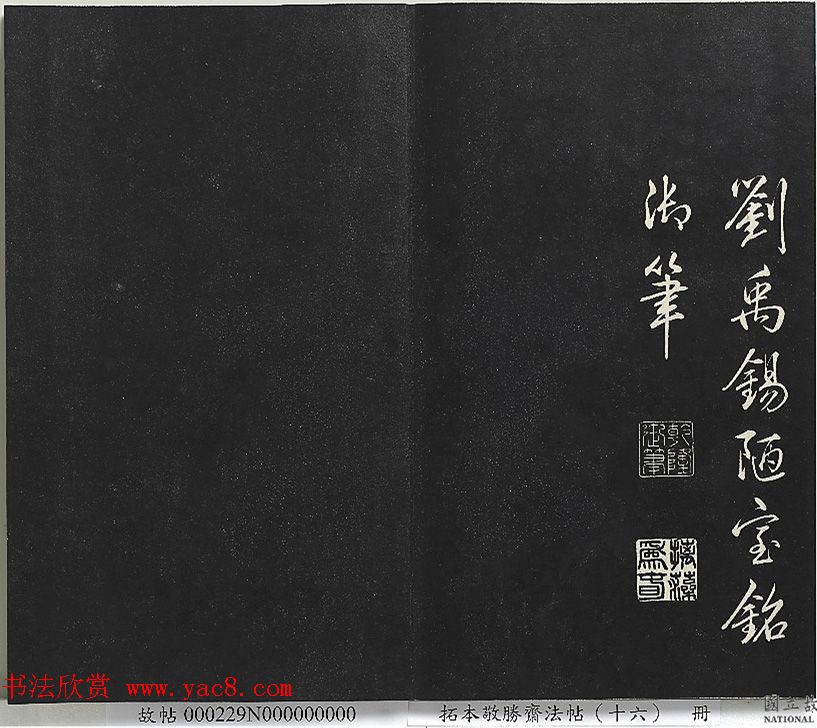 劉禹錫陋室銘
御筆
乾隆
御筆
摛藻
為春
书法欣赏 www.yac8.com
故帖 000229N000000000
拓本敬勝齋法帖（十六） 冊
國立故
NATIONAL